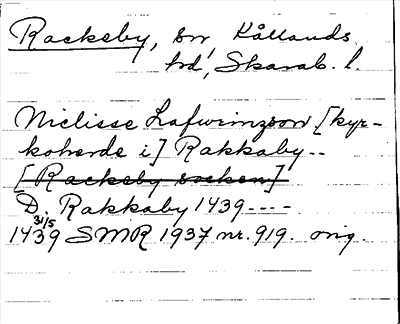 Rackeby, sn Kållands
hd, Skarab. l.
Niclisse Lafwrinzson [kyr-
koherde i] Rakkaby--
[Rackeby socken]
D. Rakkaby 1439----
31/5
1439 SMR 1937 nr. 919. orig.